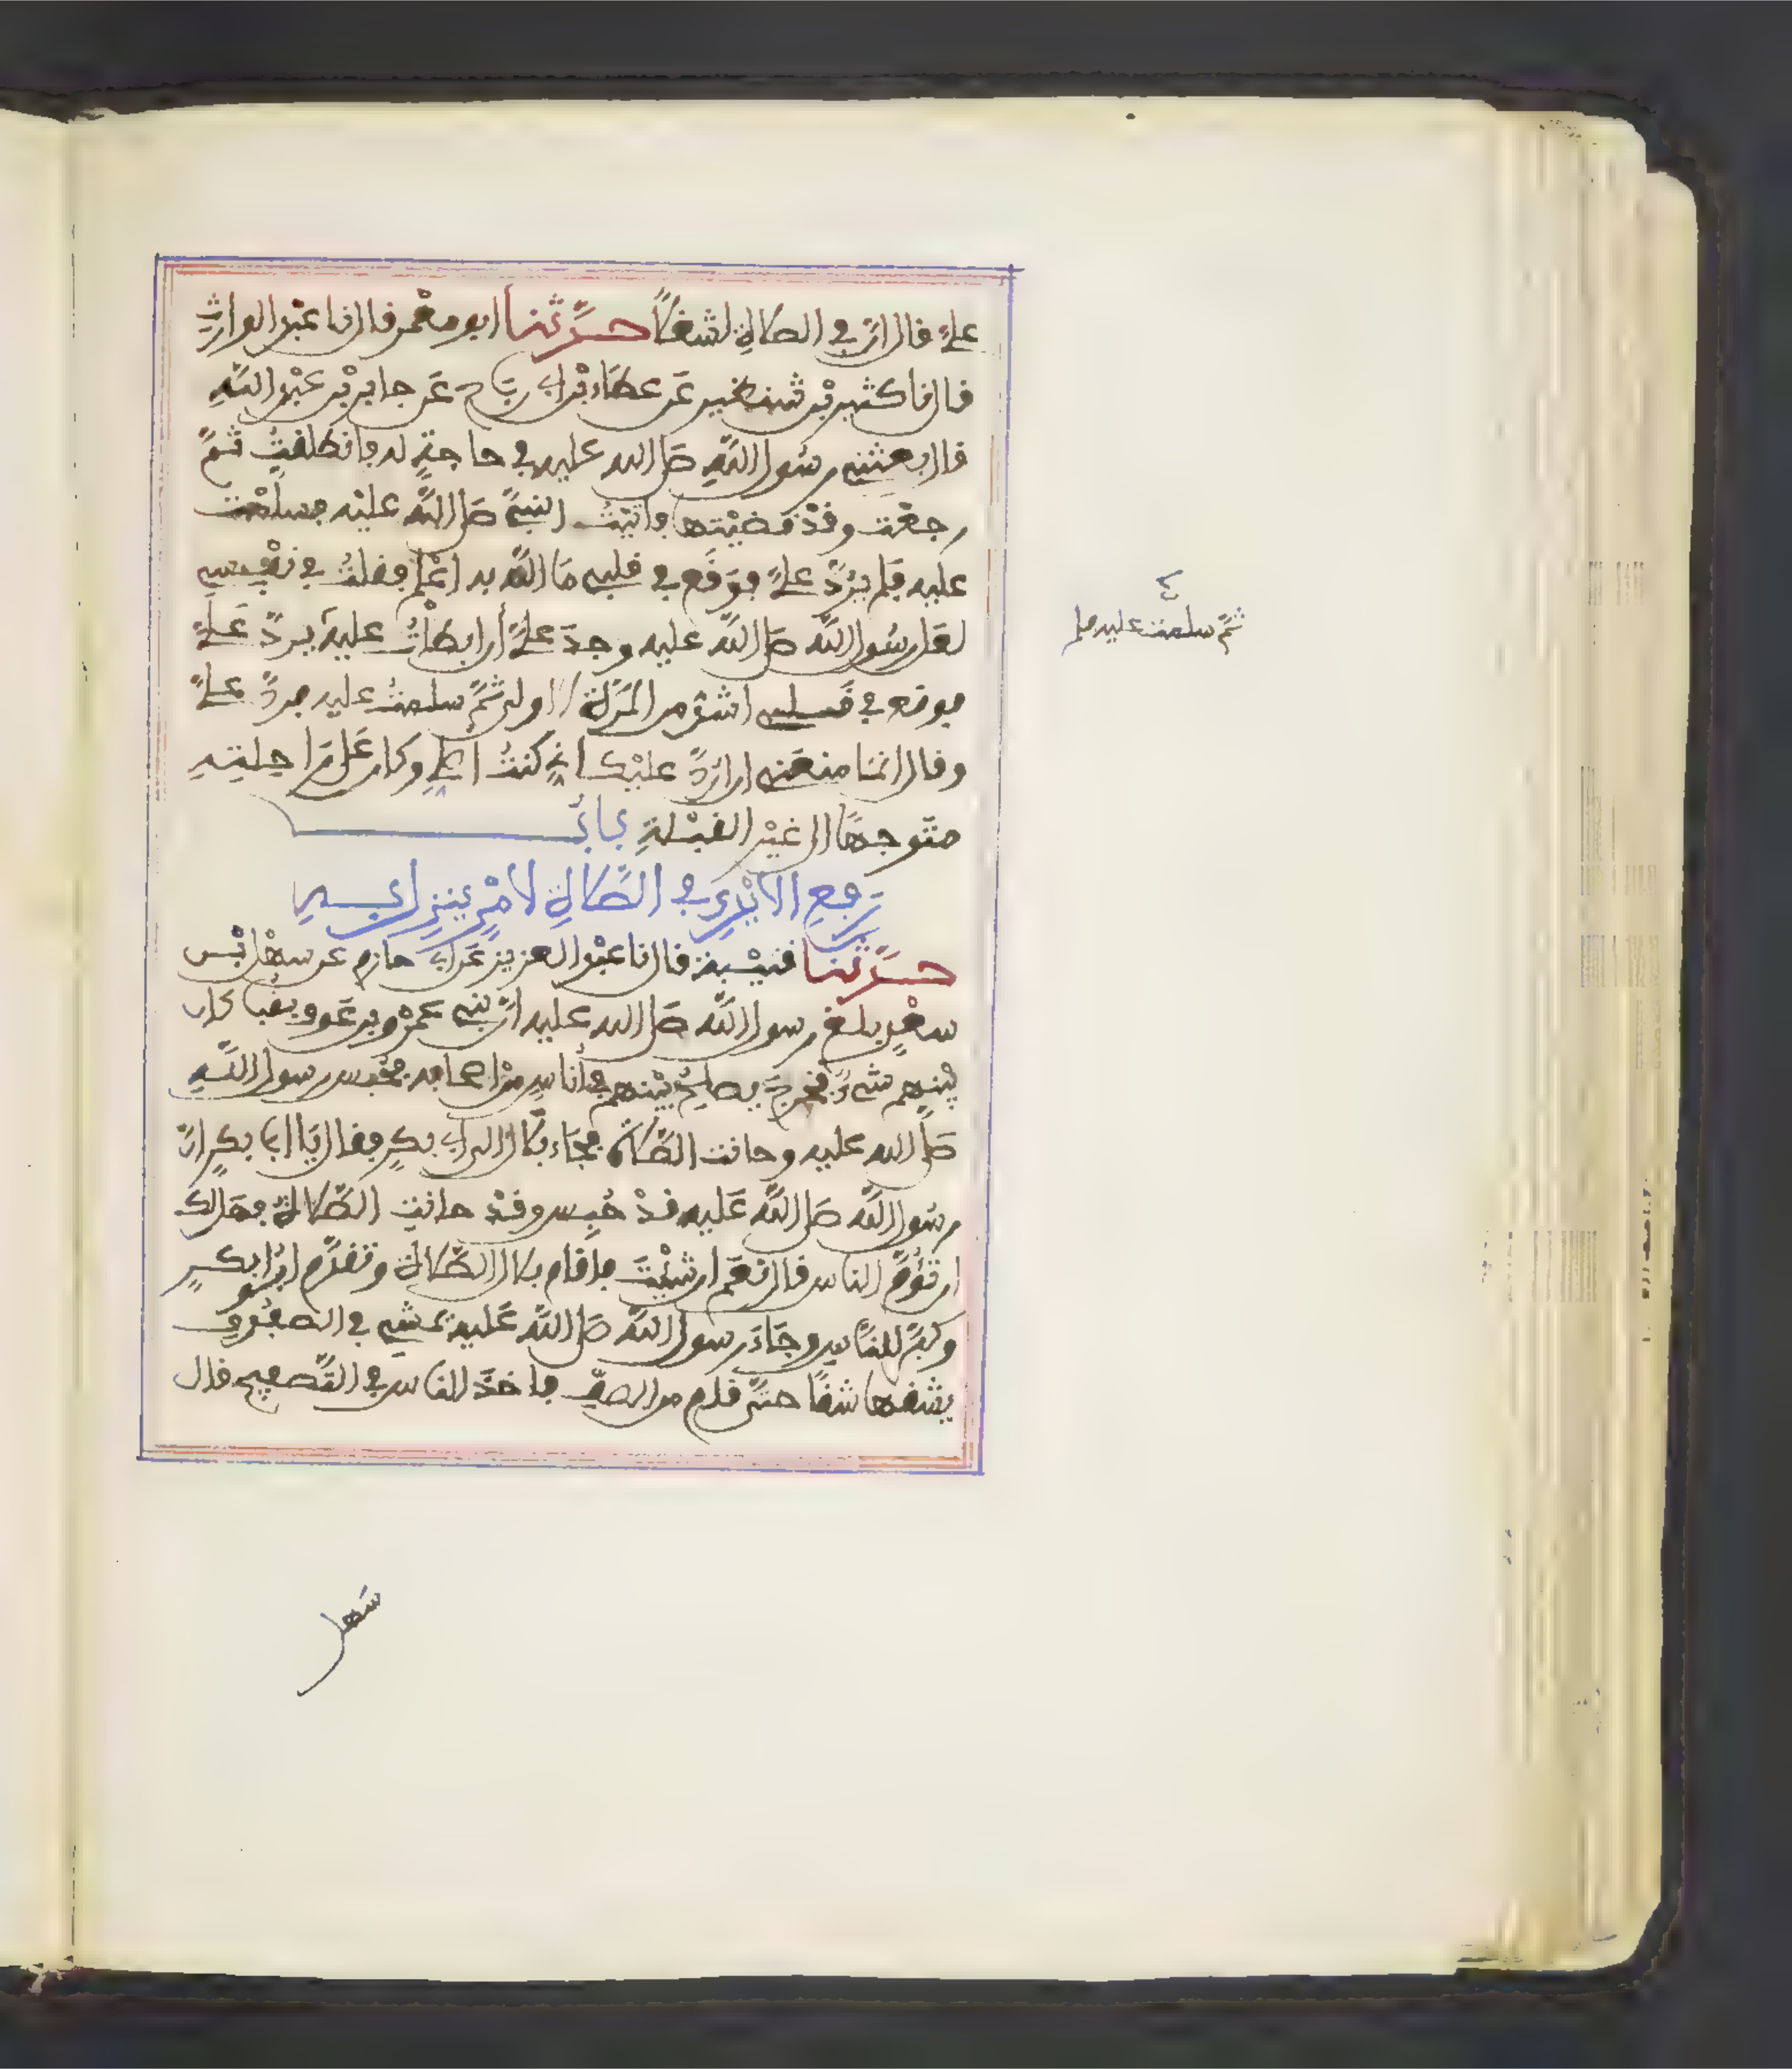 علىَّ قال انّ في الصلاةِ لشغلاً حدّثنا ابو معْمر قال نا عبْد الوارثِ
قال نا كثير بْن شِنظير عَن عطاء بْن ابي رَبَاح عَن جابر بْن عبْد اللّهِ
قال بعثني رسُول اللّهِ صلى الله عليه في حاجةٍ له فانطلقتُ ثمَّ
رجعْت وقدْ قضيْتها فاتيْتُ النبيَّ صلى اللّه عليْه فسلّمْت
عليه فلم يرُدَّ علىَّ فوَقَع في قلبي مَا اللّه به اعْلم فقلتُ في نفْسي
لعل رسُول اللّه صلى اللّه عليه وجدَ علىَّ أن ابطأتُ عليه يردَّ عَلىَّ
فوقع في قَلبي اشدّ من المَرّة الاولى ثمَّ سلمتُ عليه فردَّ علىَّ
وقال انما منعَني ان اردَّ عليْك اني كنتُ اصلي وكان عَلى رَاحِلتِهِ
متوجهًا الى غيْر القبْلةِ بابُ
رَفعِ الايْدِي في الصَّلاةِ لامْرٍ ينزل بهِ
حدّثنا قتيْبة قال نا عبْد العزيز عَن ابي حازم عن سهْل بْن
سعْدٍ بلغ رسول اللّه صلى الله عليه انّ بني عمْرو بن عَوف بقبا كان
بيْنهم شيءٌ فخرجَ يصلِحُ بيْنهم في أناسٍ منْ اصحابه فحُبس رسول اللّهِ
صلى الله عليه وحانت الصَّلاة فجَاء بلال الى ابي بكرٍ فقال يَا ابا بكرٍ انّ
رسُول اللّه صلى اللّه عَليه قدْ حُبِس وقدْ حانتِ الصَّلاة فهَل لك
ان تؤُمَّ الناس قال نعَم ان شئتَ فاقام بلال الصَّلاةَ وتقدَّم ابُو بكرٍ
وكبّر للنّاسِ وجَاءَ رسول اللّه صلى اللّه عَليه يمْشي في الصفُوفِ
يشقها شقًا حتّى قام من الصفِّ فاخذَ الناس في التَّصفيح قال
ثمَّ سلمت عليه فلم
سَهل